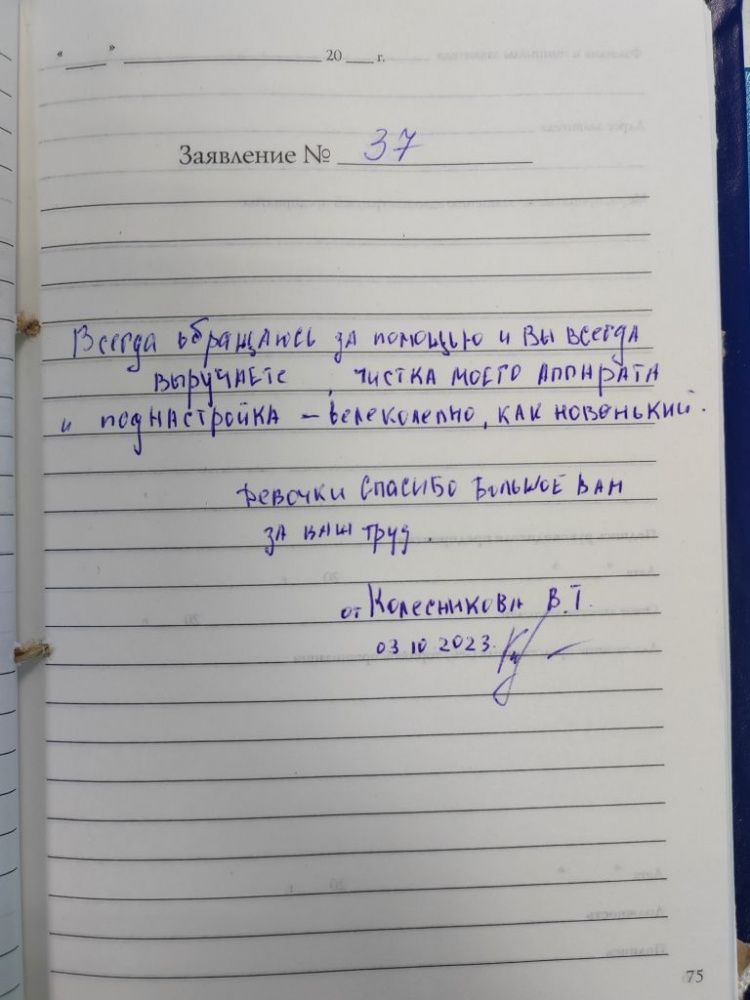 "___" ____________ 20 ___ г.
Заявление № 37
Всегда обращаюсь за помощью и вы всегда
выручаете, чистка моего аппарата
и поднастройка – велеколепно, как новенький.
Девочки спасибо большое вам
за ваш труд.
от Колесникова В.Т.
03.10 2023.
75